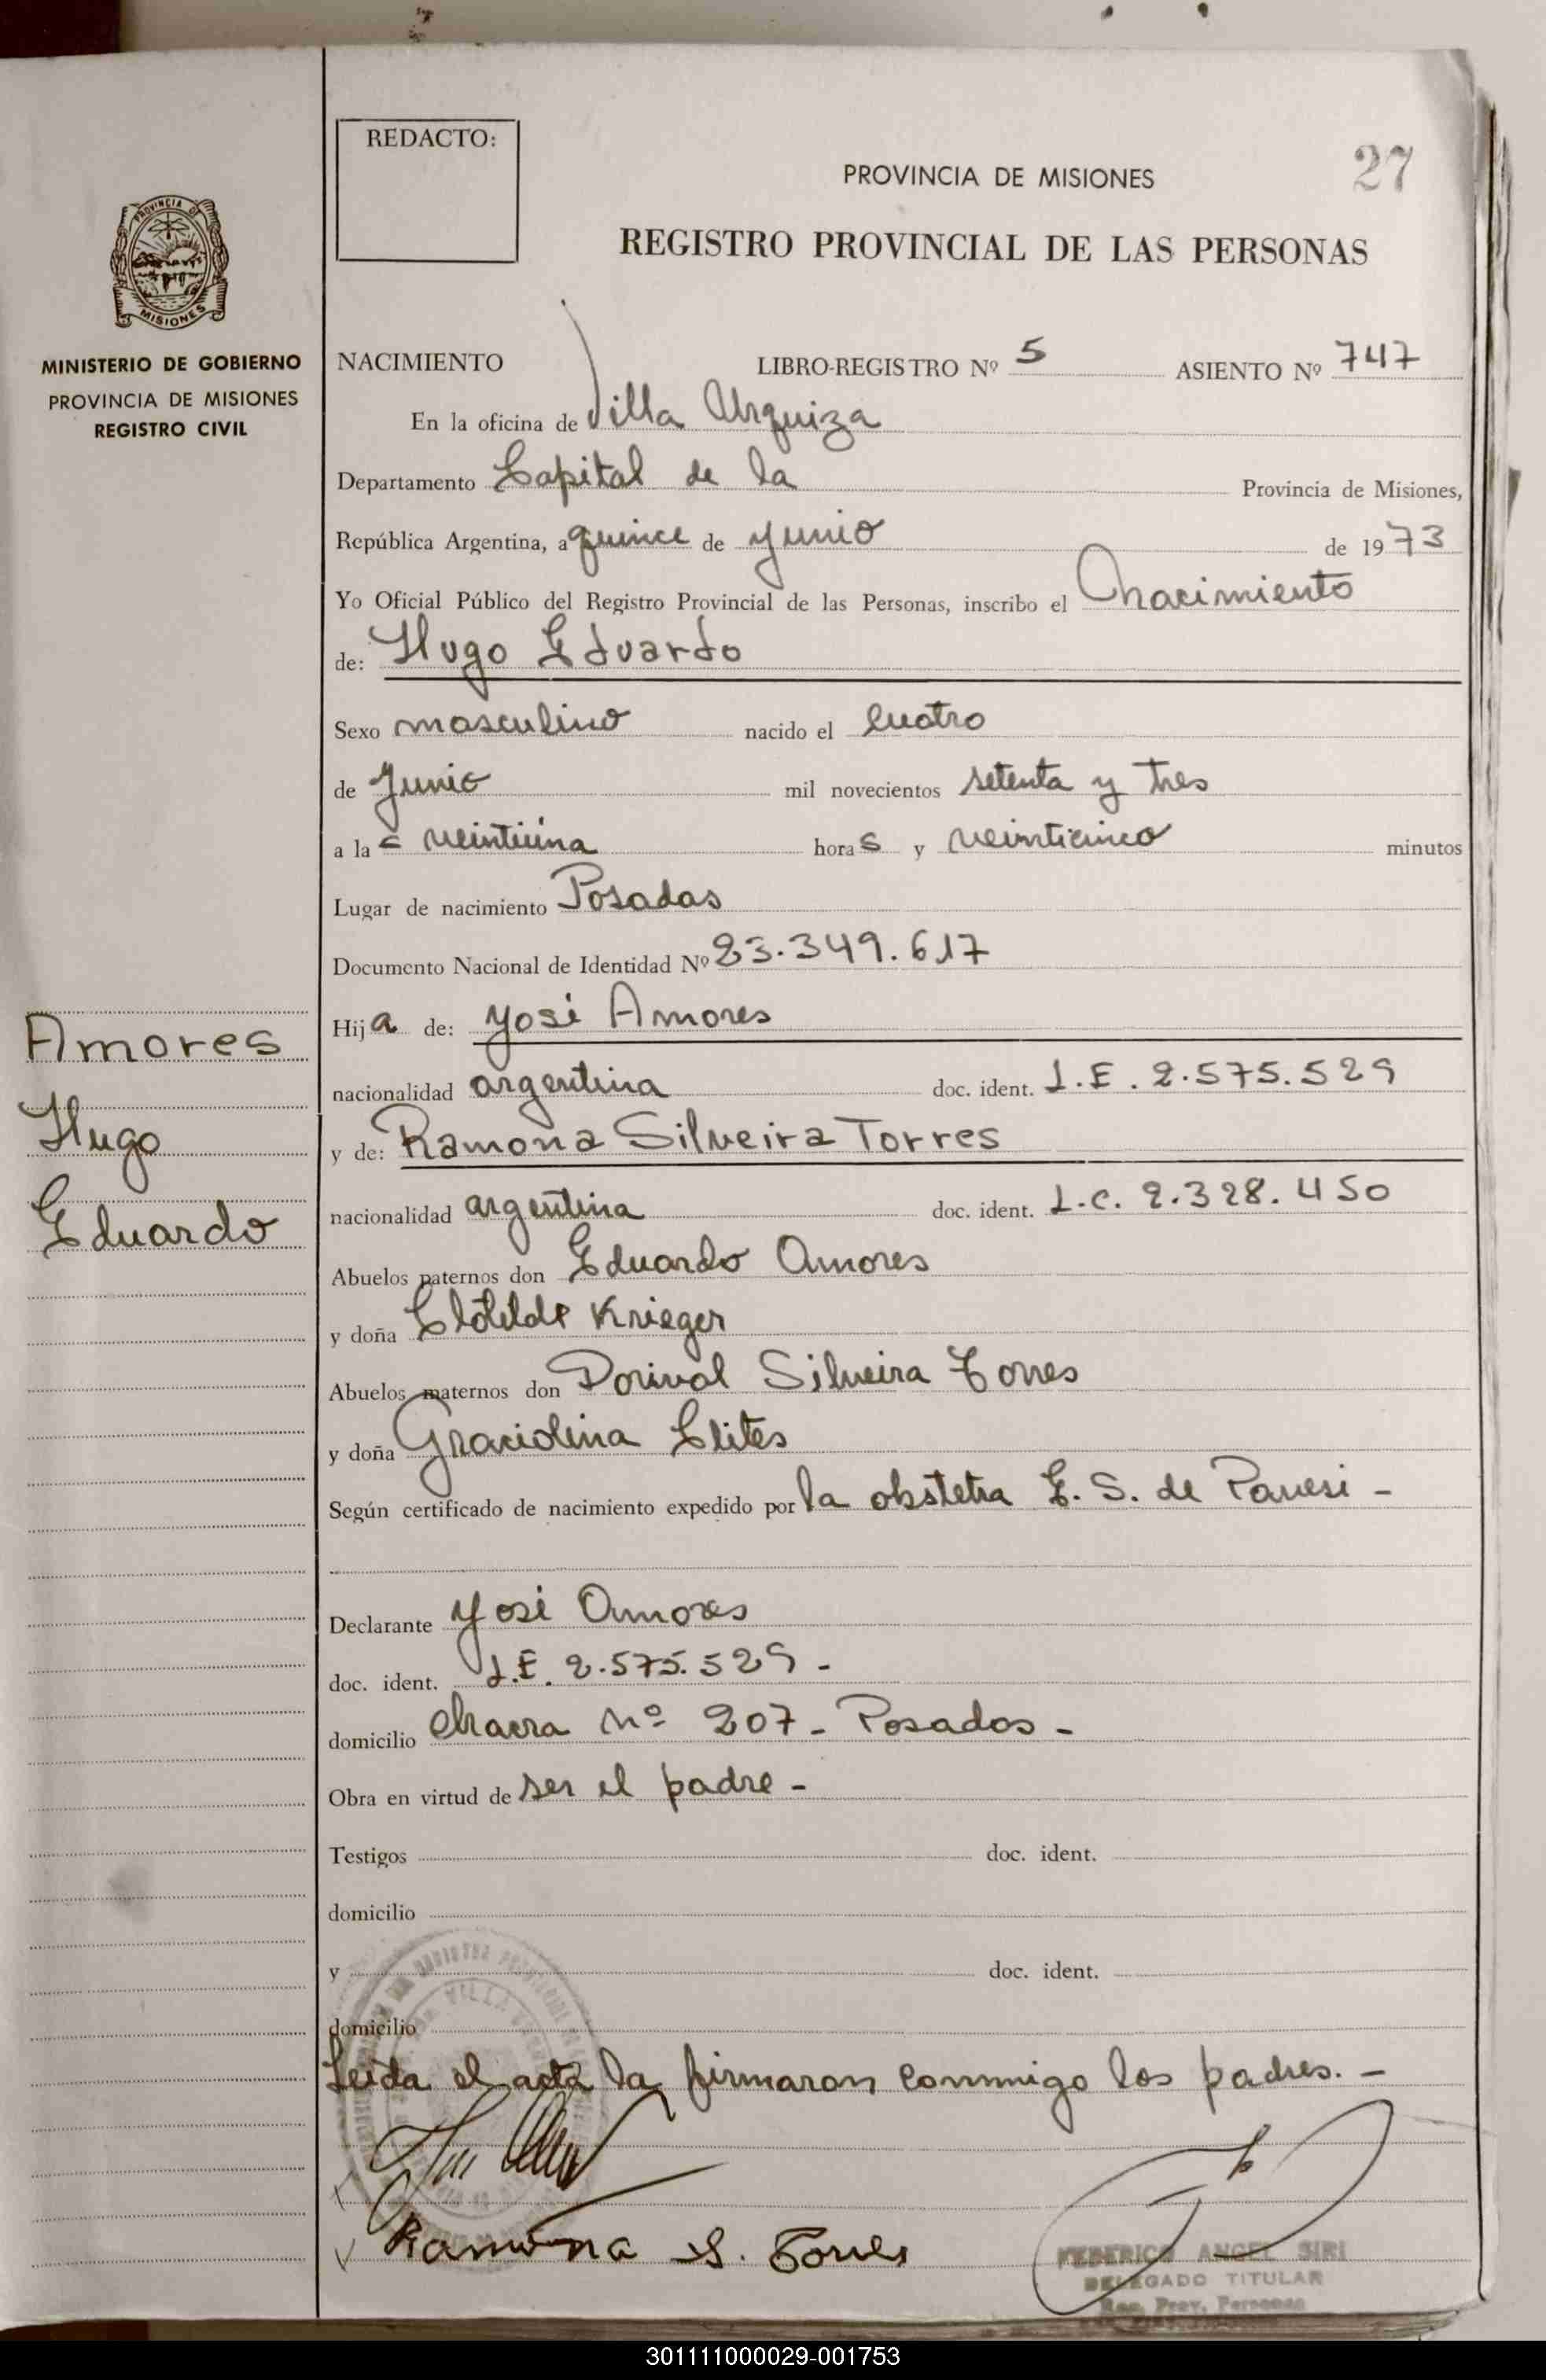 REDACTO:
27
PROVINCIA DE MISIONES
REGISTRO PROVINCIAL DE LAS PERSONAS
PROVINCIA DE
MISIONES
MINISTERIO DE GOBIERNO
PROVINCIA DE MISIONES
REGISTRO CIVIL
NACIMIENTO LIBRO-REGISTRO Nº 5 ASIENTO Nº 747
En la oficina de Villa Urquiza
Departamento Capital de la Provincia de Misiones,
República Argentina, a quince de junio de 1973
Yo Oficial Público del Registro Provincial de las Personas, inscribo el nacimiento
de: Hugo Eduardo
Sexo masculino nacido el cuatro
de Junio mil novecientos setenta y tres
a las veintiúna horas y veinticinco minutos
Lugar de nacimiento Posadas
Documento Nacional de Identidad Nº 23.349.617
Amores
Hugo
Eduardo
Hija de: José Amores
nacionalidad argentina doc. ident. L.E. 2.575.529
y de: Ramona Silveira Torres
nacionalidad argentina doc. ident. L.C. 2.328.450
Abuelos paternos don Eduardo Amores
y doña Clotilde Krieger
Abuelos maternos don Dorival Silveira Torres
y doña Graciolina Clites
Según certificado de nacimiento expedido por la obstetra E. S. de Panesi -
Declarante José Amores
doc. ident. L.E. 2.575.529 -
domicilio chacra Nº 207 - Posadas -
Obra en virtud de ser el padre -
Testigos doc. ident.
domicilio
y doc. ident.
domicilio
Leída el acta la firmaron conmigo los padres. -
Ramona S. Torres
FEDERICO ANGEL SIRI
DELEGADO TITULAR
Reg. Prov. Personas
301111000029-001753